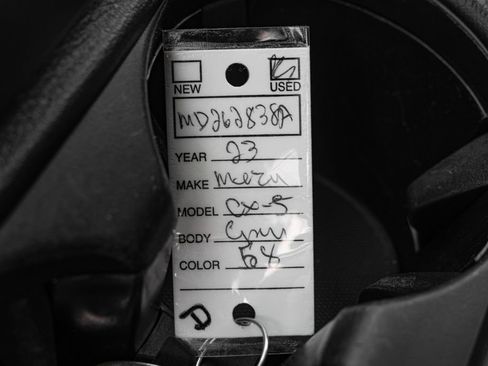 NEW USED
MD262838A
YEAR 23
MAKE
MODEL CX-5
BODY
COLOR 68
D